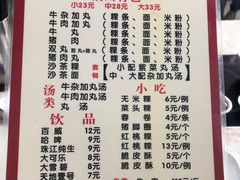 小23元 中28元 大33元
牛杂加丸（粿条、面、米粉）
牛肉加丸（粿条、面、米粉）
牛肉丸（粿条、面、米粉）
猪肉丸（粿条、面、米粉）
双丸（粿条、面、米粉）
猪肉加丸（粿条、面、米粉）
沙茶粿条（小配紫菜丸汤）
沙茶面（中、大配杂加丸汤）
汤类
牛杂加丸汤
牛肉加丸汤
饮品
百威 12元
哈啤 9元
珠江纯生 9元
大可乐 9元
大雪碧 9元
小吃
无米粿 6元/例
菜粿 5元/例
春卷 5元/例
猪脚圈 5元/个
红桃粿 5元/个
脆皮酥 5元/例
脆皮肠 5元/例